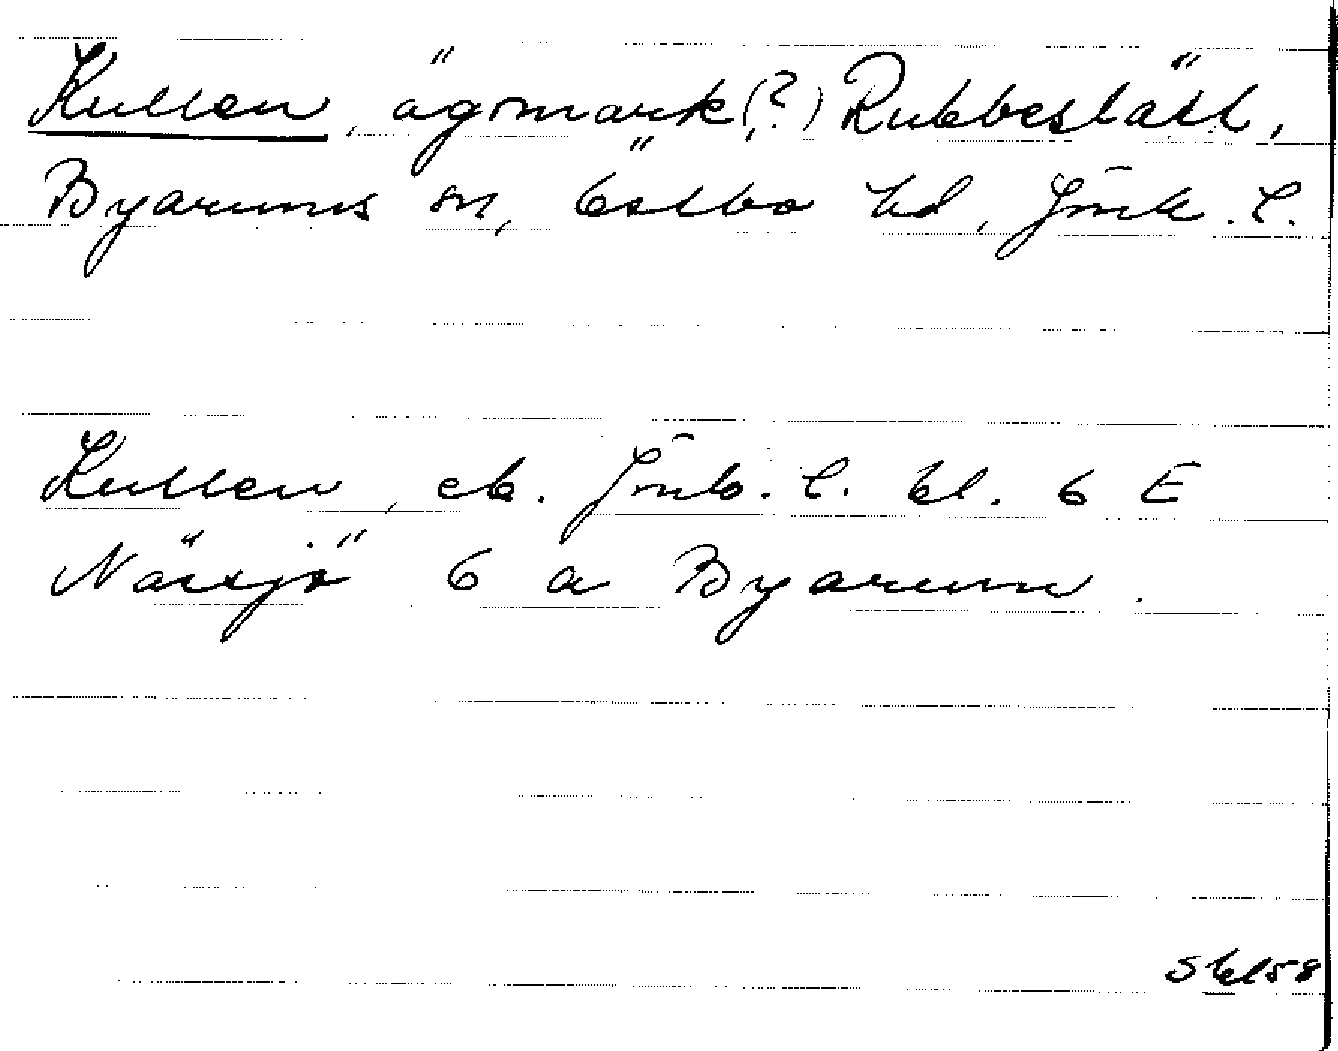 Kullen, ägomark (?) Rubbeställ,
Byarums sn, Östbo hd, Jönk. l.
Kullen, eb. Jönk. l. bl. 6 E
Nässjö 6 a Byarum.